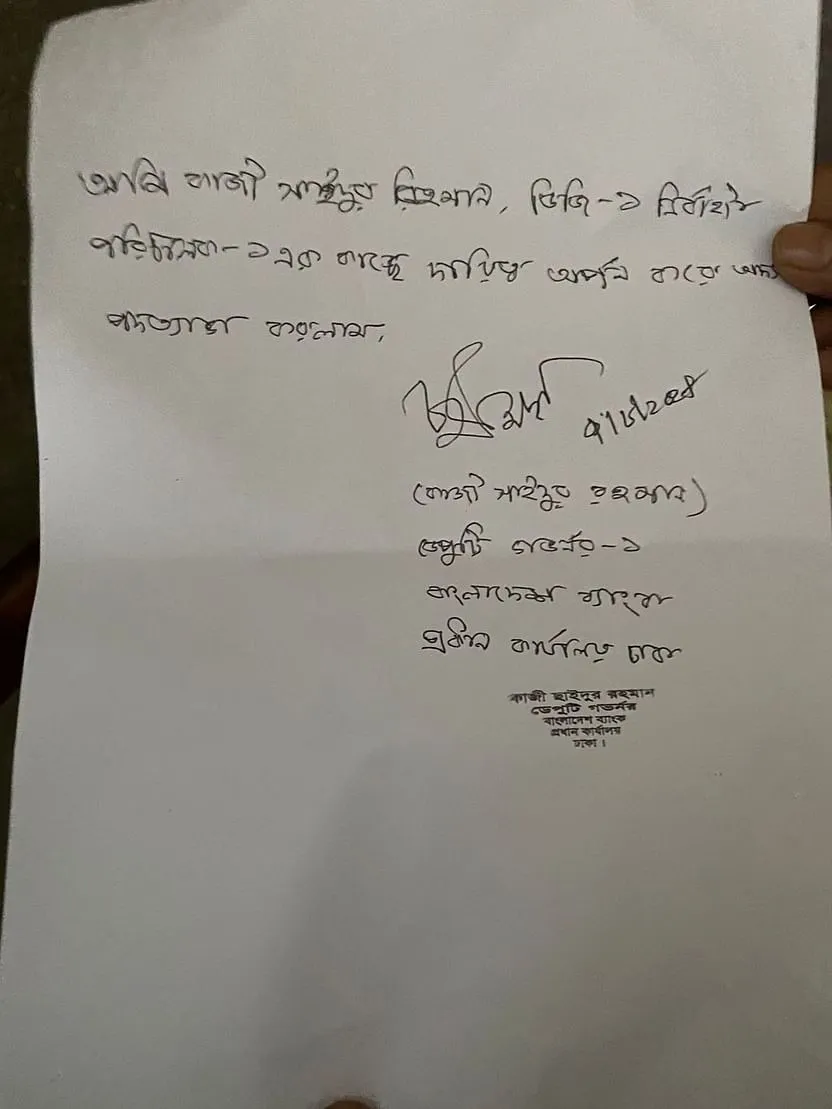 আমি কাজী ছাইদুর রহমান, ডিজি-১ নির্বাহী
পরিচালক-১ এর কাছে দায়িত্ব অর্পন করে অদ্য
পদত্যাগ করলাম,
(কাজী ছাইদুর রহমান)
ডেপুটি গভর্নর-১
বাংলাদেশ ব্যাংক
প্রধান কার্যালয় ঢাকা
কাজী ছাইদুর রহমান
ডেপুটি গভর্নর
বাংলাদেশ ব্যাংক
প্রধান কার্যালয়
ঢাকা।